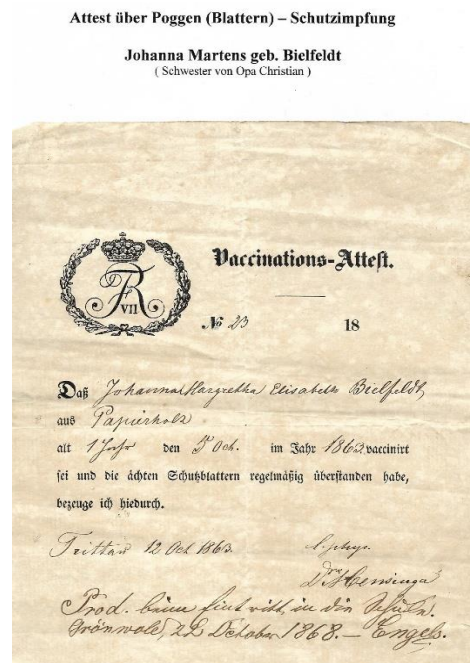 Attest über Poggen (Blattern) – Schutzimpfung
Johanna Martens geb. Bielfeldt
( Schwester von Opa Christian )
FR VII
Vaccinations-Attest.
№ 23 18
Daß Johanna Margretha Elisabeth Bielfeldt
aus Papierholz
alt 1 Jahr den 5 Oct. im Jahr 1863 vaccinirt
sei und die ächten Schutzblattern regelmäßig überstanden habe,
bezeuge ich hiedurch.
Trittau 12 Oct 1863.
Prod. beim in die Schule.
Grönwold, 22 October 1868. — Engels.